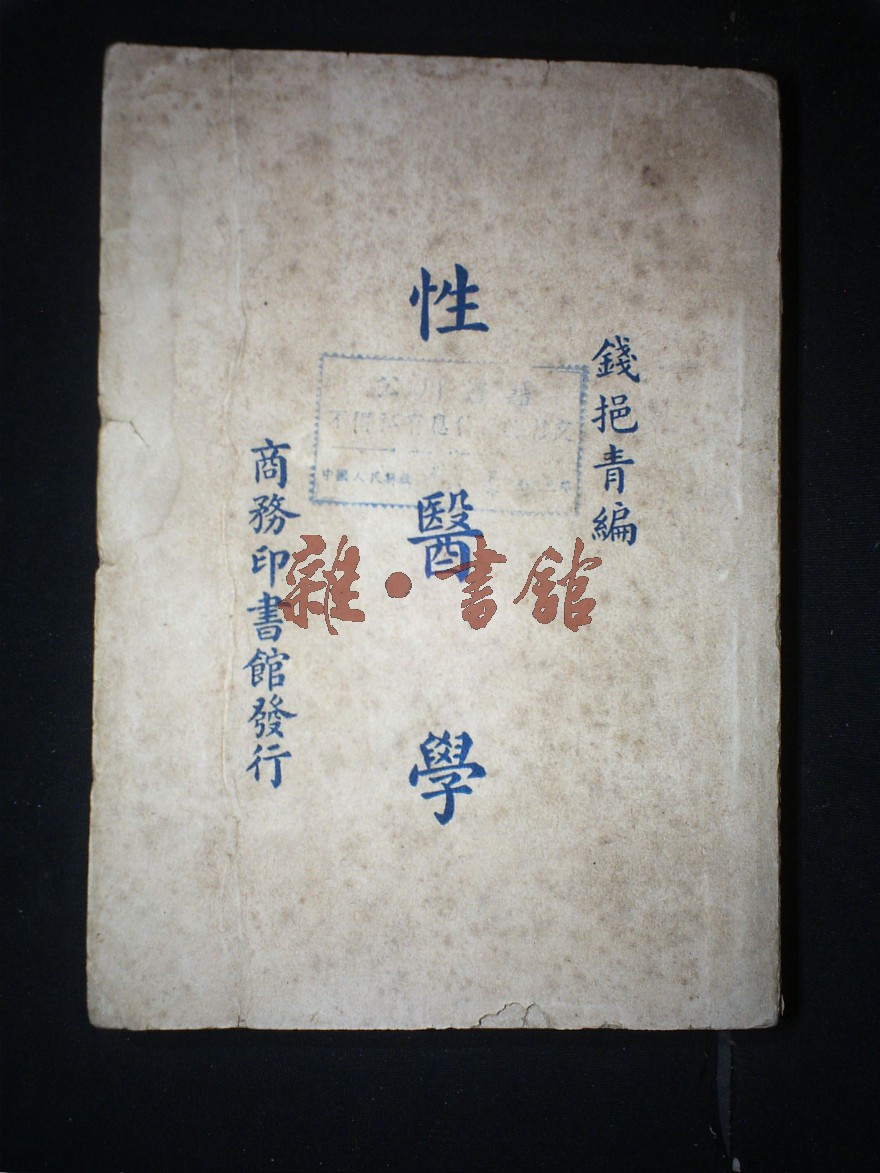 錢挹青編
性醫學
商務印書館發行
中國人民解放
雜·書館